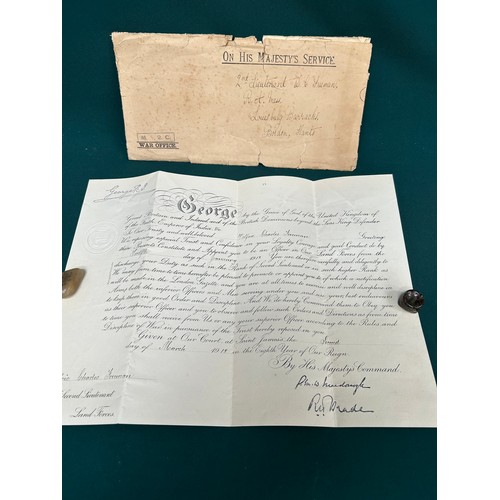 ON HIS MAJESTY'S SERVICE
2nd Lieutenant
Officers' Mess
Barracks
Hants
WAR OFFICE
George R.I.
George by the Grace of God of the United Kingdom of
Great Britain and Ireland and of the British Dominions beyond the Seas King Defender
of the Faith, Emperor of India &c
To Our Trusty and well beloved Charles Greeting
We reposing especial Trust and Confidence in your Loyalty, Courage and good Conduct do by
these Presents Constitute and Appoint you to be an Officer in Our Land Forces from the
day of January 1918. You are therefore carefully and diligently to
discharge your Duty as such in the Rank of Second Lieutenant or in such higher Rank as
We may from time to time hereafter be pleased to promote or appoint you to of which a notification
will be made in the London Gazette and you are at all times to exercise and well discipline in
Arms both the inferior Officers and Men serving under you and use your best endeavours
to keep them in good Order and Discipline. And We do hereby Command them to Obey you
as their superior Officer and you to observe and follow such Orders and Directions as from time
to time you shall receive from Us or any your superior Officer according to the Rules and
Discipline of War in pursuance of the Trust hereby reposed in you.
Given at Our Court, at Saint James's the
day of March 1918 in the Eighth Year of Our Reign
By His Majesty's Command.
Charles
Second Lieutenant
Land Forces